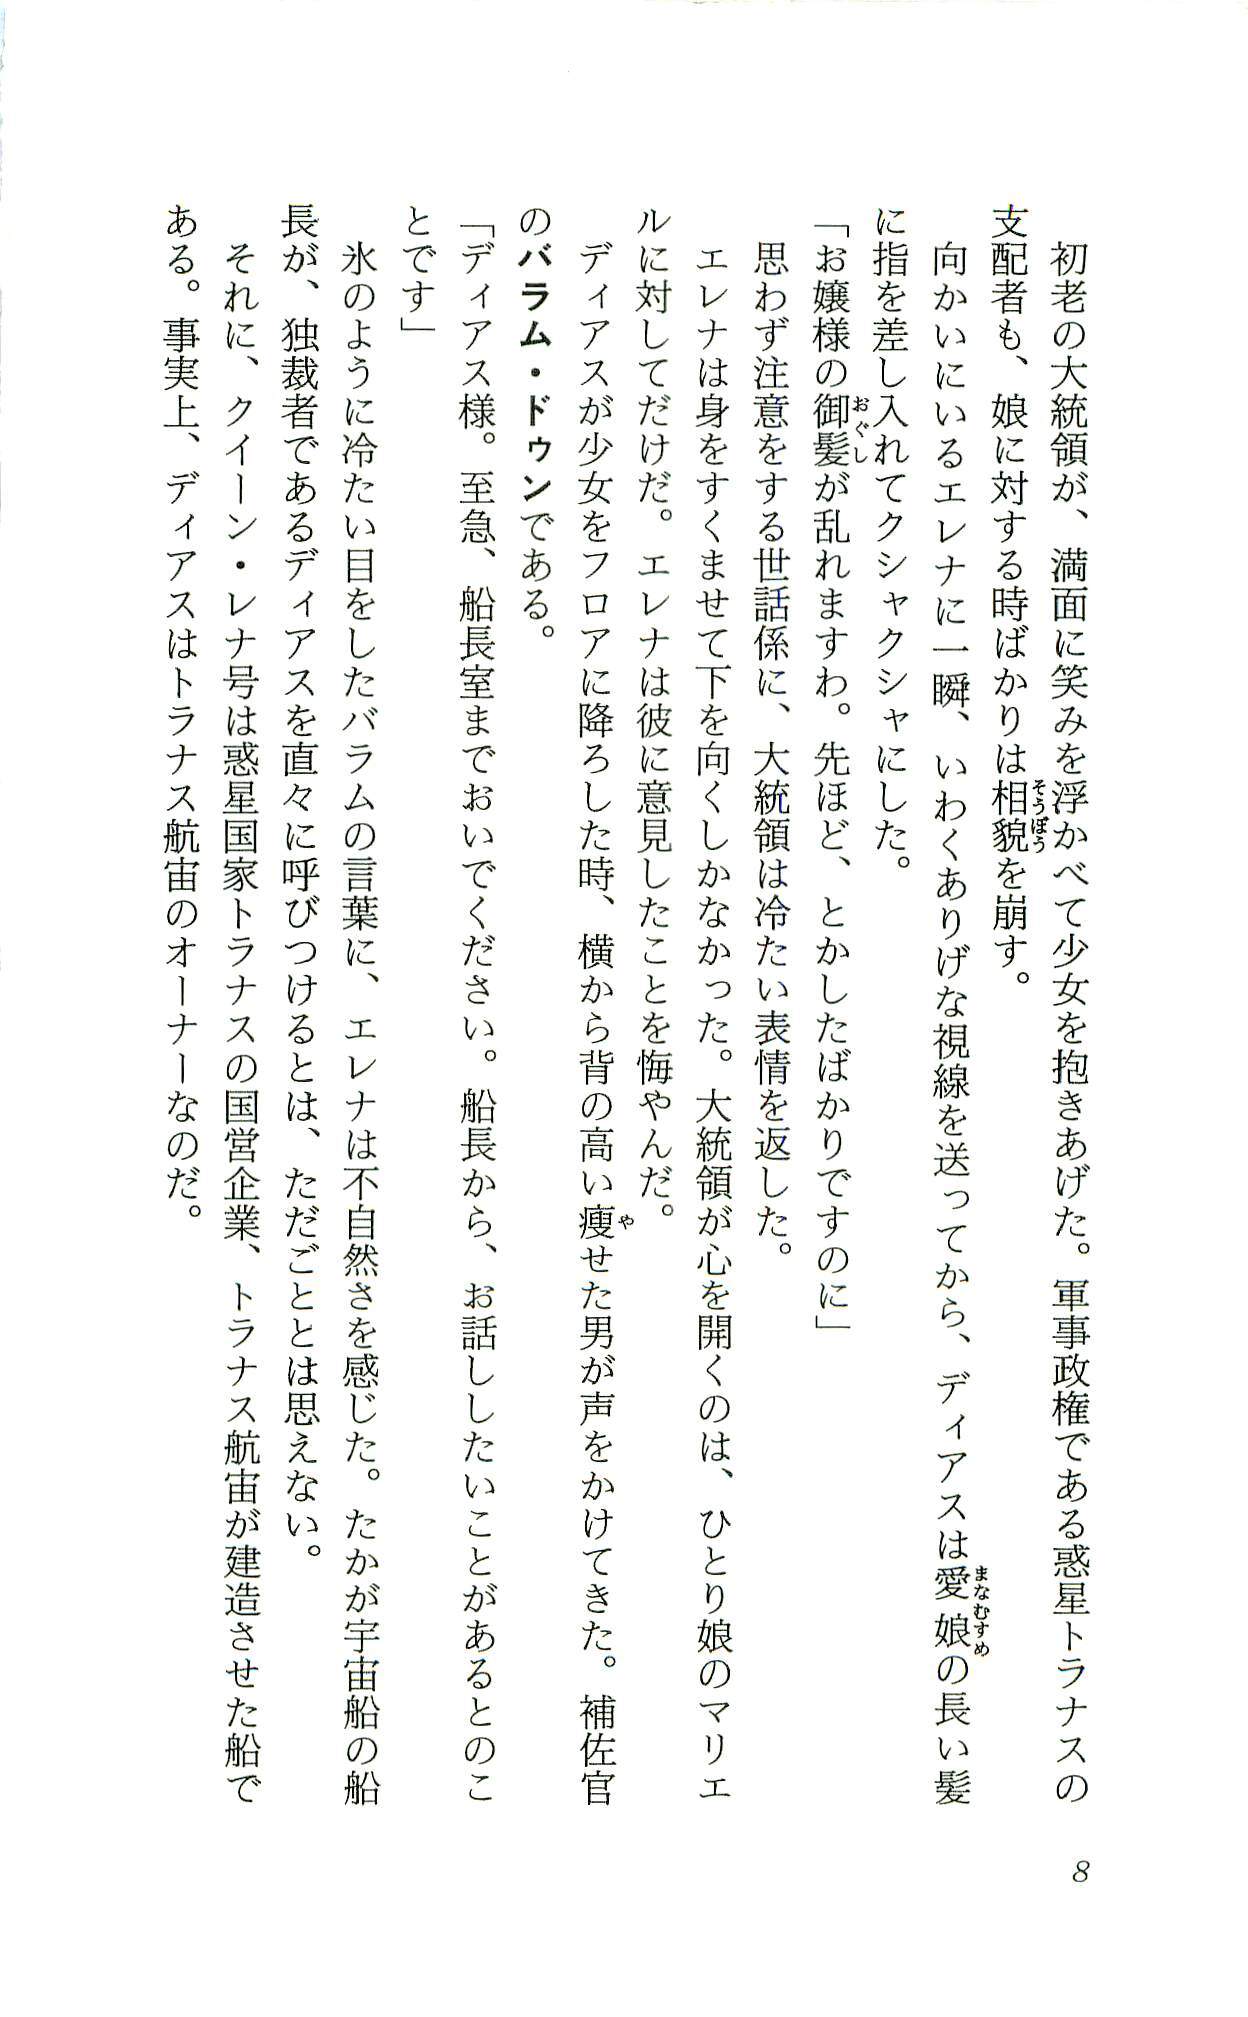 初老の大統領が、満面に笑みを浮かべて少女を抱きあげた。軍事政権である惑星トラナスの
支配者も、娘に対する時ばかりは相貌を崩す。
向かいにいるエレナに一瞬、いわくありげな視線を送ってから、ディアスは愛娘の長い髪
に指を差し入れてクシャクシャにした。
「お嬢様の御髪が乱れますわ。先ほど、とかしたばかりですのに」
思わず注意をする世話係に、大統領は冷たい表情を返した。
エレナは身をすくませて下を向くしかなかった。大統領が心を開くのは、ひとり娘のマリエ
ルに対してだけだ。エレナは彼に意見したことを悔やんだ。
ディアスが少女をフロアに降ろした時、横から背の高い痩せた男が声をかけてきた。補佐官
のバラム・ドゥンである。
「ディアス様。至急、船長室までおいでください。船長から、お話ししたいことがあるとのこ
とです」
氷のように冷たい目をしたバラムの言葉に、エレナは不自然さを感じた。たかが宇宙船の船
長が、独裁者であるディアスを直々に呼びつけるとは、ただごととは思えない。
それに、クイーン・レナ号は惑星国家トラナスの国営企業、トラナス航宙が建造させた船で
ある。事実上、ディアスはトラナス航宙のオーナーなのだ。
8